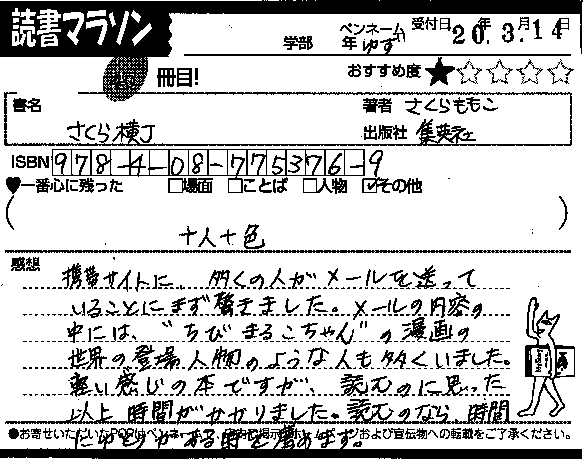 読書マラソン
学部 年 ペンネーム ゆず 受付日 20年 3月 14日
冊目! おすすめ度 ★☆☆☆☆
書名 著者 さくらももこ
さくら横丁 出版社 集英社
ISBN 978-4-08-775376-9
♥一番心に残った □場面 □ことば □人物 ☑その他
(十人十色)
感想
携帯サイトに、多くの人がメールを送って
いることにまず驚きました。メールの内容の
中には、“ちびまるこちゃん”の漫画の
世界の登場人物のような人も多くいました。
軽い感じの本ですが、読むのに思った
以上時間がかかりました。読むのなら、時間
にゆとりがある時を薦めます。
●お寄せいただいたPOPはペンネームで および宣伝物への転載をご了承ください。